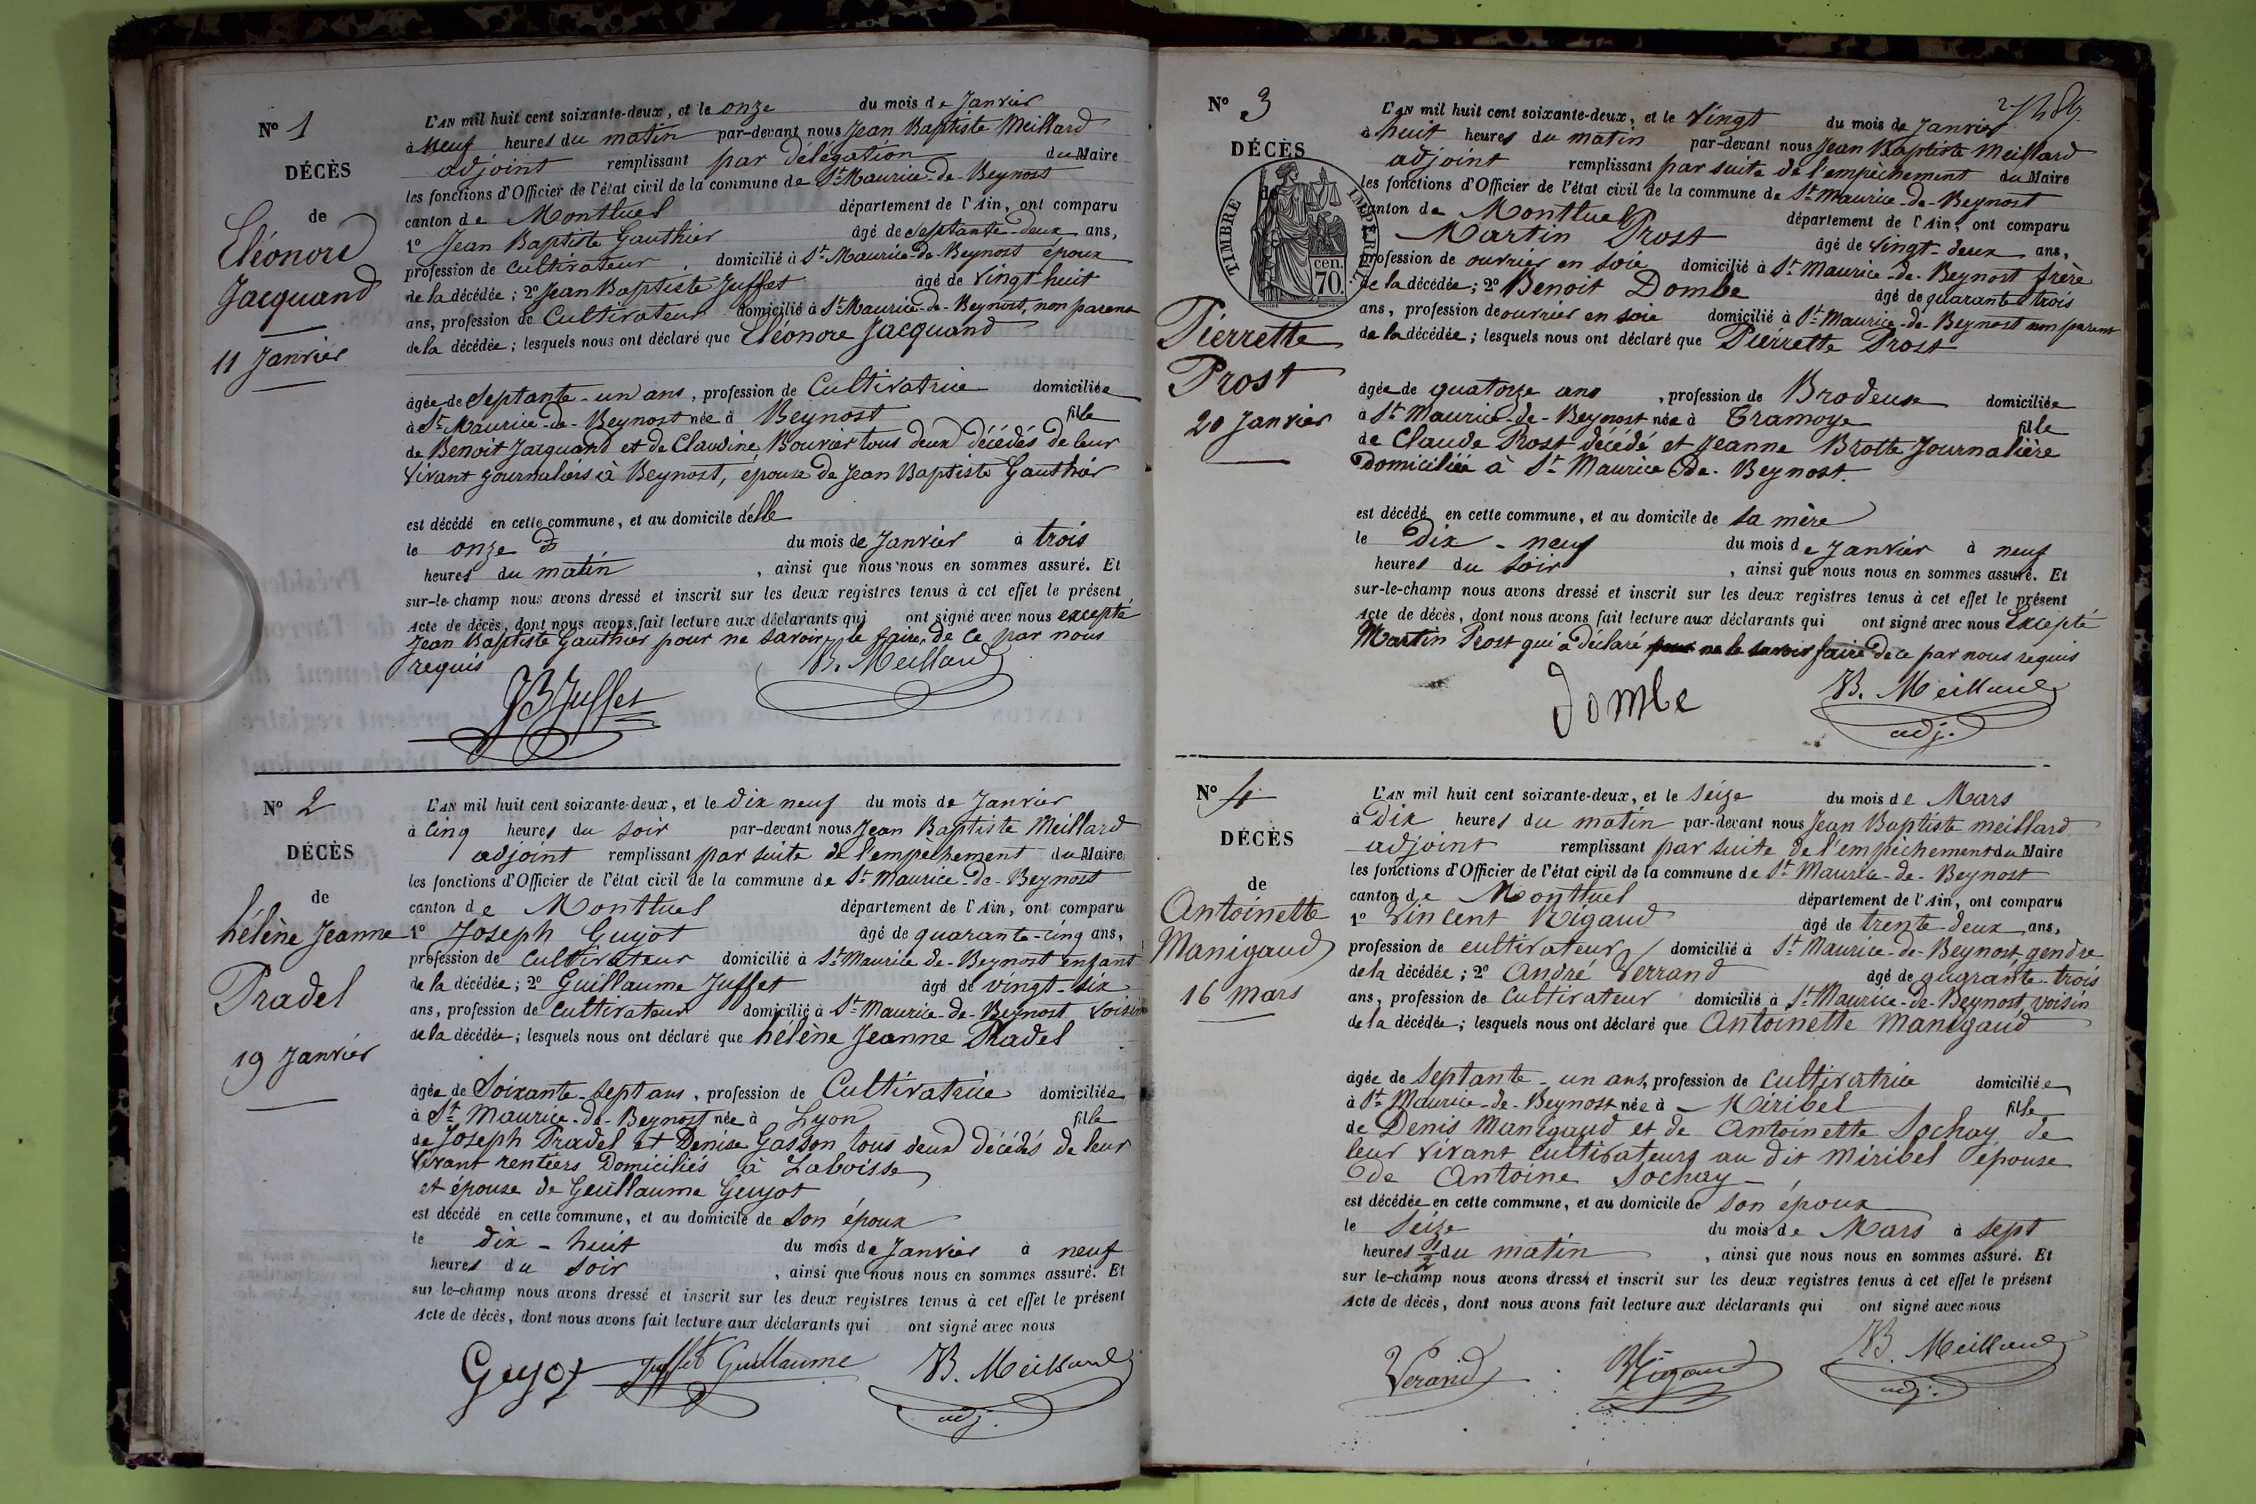 N° 1
DÉCÈS
de
Eléonore
Jacquand
11 Janvier
L'AN mil huit cent soixante-deux, et le onze du mois de Janvier
à neuf heures du matin par-devant nous Jean Baptiste Meillard
adjoint remplissant par délégation du Maire
les fonctions d'Officier de l'état civil de la commune de St Maurice-de-Beynost
canton de Montluel département de l'Ain, ont comparu
1° Jean Baptiste Gauthier âgé de septante-deux ans,
profession de cultivateur, domicilié à St Maurice-de-Beynost époux
de la décédée; 2° Jean Baptiste Juffet âgé de vingt huit
ans, profession de Cultivateur domicilié à St Maurice-de-Beynost, non parent
de la décédée; lesquels nous ont déclaré que Eléonore Jacquand
âgée de Septante-un ans, profession de Cultivatrice domiciliée
à St Maurice-de-Beynost née à Beynost fille
de Benoit Jacquand et de Claudine Bouvier tous deux décédés de leur
vivant journaliers à Beynost, épouse de Jean Baptiste Gauthier
est décédé en cette commune, et au domicile d'elle
le onze du mois de Janvier à trois
heures du matin, ainsi que nous nous en sommes assuré. Et
sur-le-champ nous avons dressé et inscrit sur les deux registres tenus à cet effet le présent
Acte de décès, dont nous avons fait lecture aux déclarants qui ont signé avec nous excepté
Jean Baptiste Gauthier pour ne savoir le faire, de ce par nous
requis
JB Juffet B. Meillard
N° 2
DÉCÈS
de
hélène Jeanne
Pradel
19 Janvier
L'AN mil huit cent soixante-deux, et le dix neuf du mois de Janvier
à cinq heures du soir par-devant nous Jean Baptiste Meillard
adjoint remplissant par suite de l'empèchement du Maire
les fonctions d'Officier de l'état civil de la commune de St Maurice-de-Beynost
canton de Montluel département de l'Ain, ont comparu
1° Joseph Guyot âgé de quarante-cinq ans,
profession de Cultivateur domicilié à St Maurice de-Beynost enfant
de la décédée; 2° Guillaume Juffet âgé de vingt-six
ans, profession de cultivateur domicilié à St Maurice-de-Beynost voisin
de la décédée; lesquels nous ont déclaré que hélène Jeanne Pradel
âgée de Soixante-sept ans, profession de Cultivatrice domiciliée
à St Maurice-de-Beynost née à Lyon fille
de Joseph Pradel et Denise Gasson tous deux décédés de leur
vivant rentiers Domiciliés à Laboisse
et épouse de Guillaume Guyot
est décédé en cette commune, et au domicile de son époux
le dix-huit du mois de Janvier à neuf
heures du soir, ainsi que nous nous en sommes assuré. Et
sur le-champ nous avons dressé et inscrit sur les deux registres tenus à cet effet le présent
Acte de décès, dont nous avons fait lecture aux déclarants qui ont signé avec nous
Guyot Juffet Guillaume B. Meillard
adj.
N° 3
DÉCÈS
de
TIMBRE IMPÉRIAL
cen.
70.
Pierrette
Prost
20 Janvier
L'AN mil huit cent soixante-deux, et le vingt du mois de Janvier
à huit heures du matin par-devant nous Jean Baptiste Meillard
adjoint remplissant par suite de l'empèchement du Maire
les fonctions d'Officier de l'état civil de la commune de St Maurice-de-Beynost
canton de Montluel département de l'Ain, ont comparu
Martin Prost âgé de vingt-deux ans,
profession de ouvrier en soie domicilié à St Maurice-de-Beynost frère
de la décédée; 2° Benoit Dombe âgé de quarante trois
ans, profession de ouvrier en soie domicilié à St Maurice-de-Beynost non parent
de la décédée; lesquels nous ont déclaré que Pierrette Prost
âgée de quatorze ans, profession de Brodeuse domiciliée
à St Maurice-de-Beynost née à Tramoye fille
de Claude Prost décédé et Jeanne Brotte Journalière
Domiciliée à St Maurice-de-Beynost.
est décédé en cette commune, et au domicile de sa mère
le dix-neuf du mois de Janvier à neuf
heures du soir, ainsi que nous nous en sommes assuré. Et
sur-le-champ nous avons dressé et inscrit sur les deux registres tenus à cet effet le présent
Acte de décès, dont nous avons fait lecture aux déclarants qui ont signé avec nous Excepté
Martin Prost qui a déclaré ne le savoir faire de ce par nous requis
Dombe B. Meillard
adj.
N° 4
DÉCÈS
de
Antoinette
Manigaud
16 Mars
L'AN mil huit cent soixante-deux, et le Seize du mois de Mars
à Dix heures du matin par-devant nous Jean Baptiste meillard
adjoint remplissant par suite de l'empèchement du Maire
les fonctions d'Officier de l'état civil de la commune de St Maurice-de-Beynost
canton de Montluel département de l'Ain, ont comparu
1° Vincent Rigaud âgé de trente-deux ans,
profession de cultivateur domicilié à St Maurice-de-Beynost, gendre
de la décédée; 2° André Verrand âgé de quarante-trois
ans, profession de Cultivateur domicilié à St Maurice-de-Beynost, voisin
de la décédée; lesquels nous ont déclaré que Antoinette Manigaud
âgée de Septante-un ans, profession de cultivatrice domiciliée
à St Maurice-de-Beynost née à Miribel fille
de Denis Manigaud et de Antoinette Sochay de
leur vivant cultivateurs au dit Miribel épouse
de Antoine Sochay
est décédée en cette commune, et au domicile de son époux
le Seize du mois de Mars à sept
heures 1/2 du matin, ainsi que nous nous en sommes assuré. Et
sur le-champ nous avons dressé et inscrit sur les deux registres tenus à cet effet le présent
Acte de décès, dont nous avons fait lecture aux déclarants qui ont signé avec nous
Verand Rigaud B. Meillard
adj.